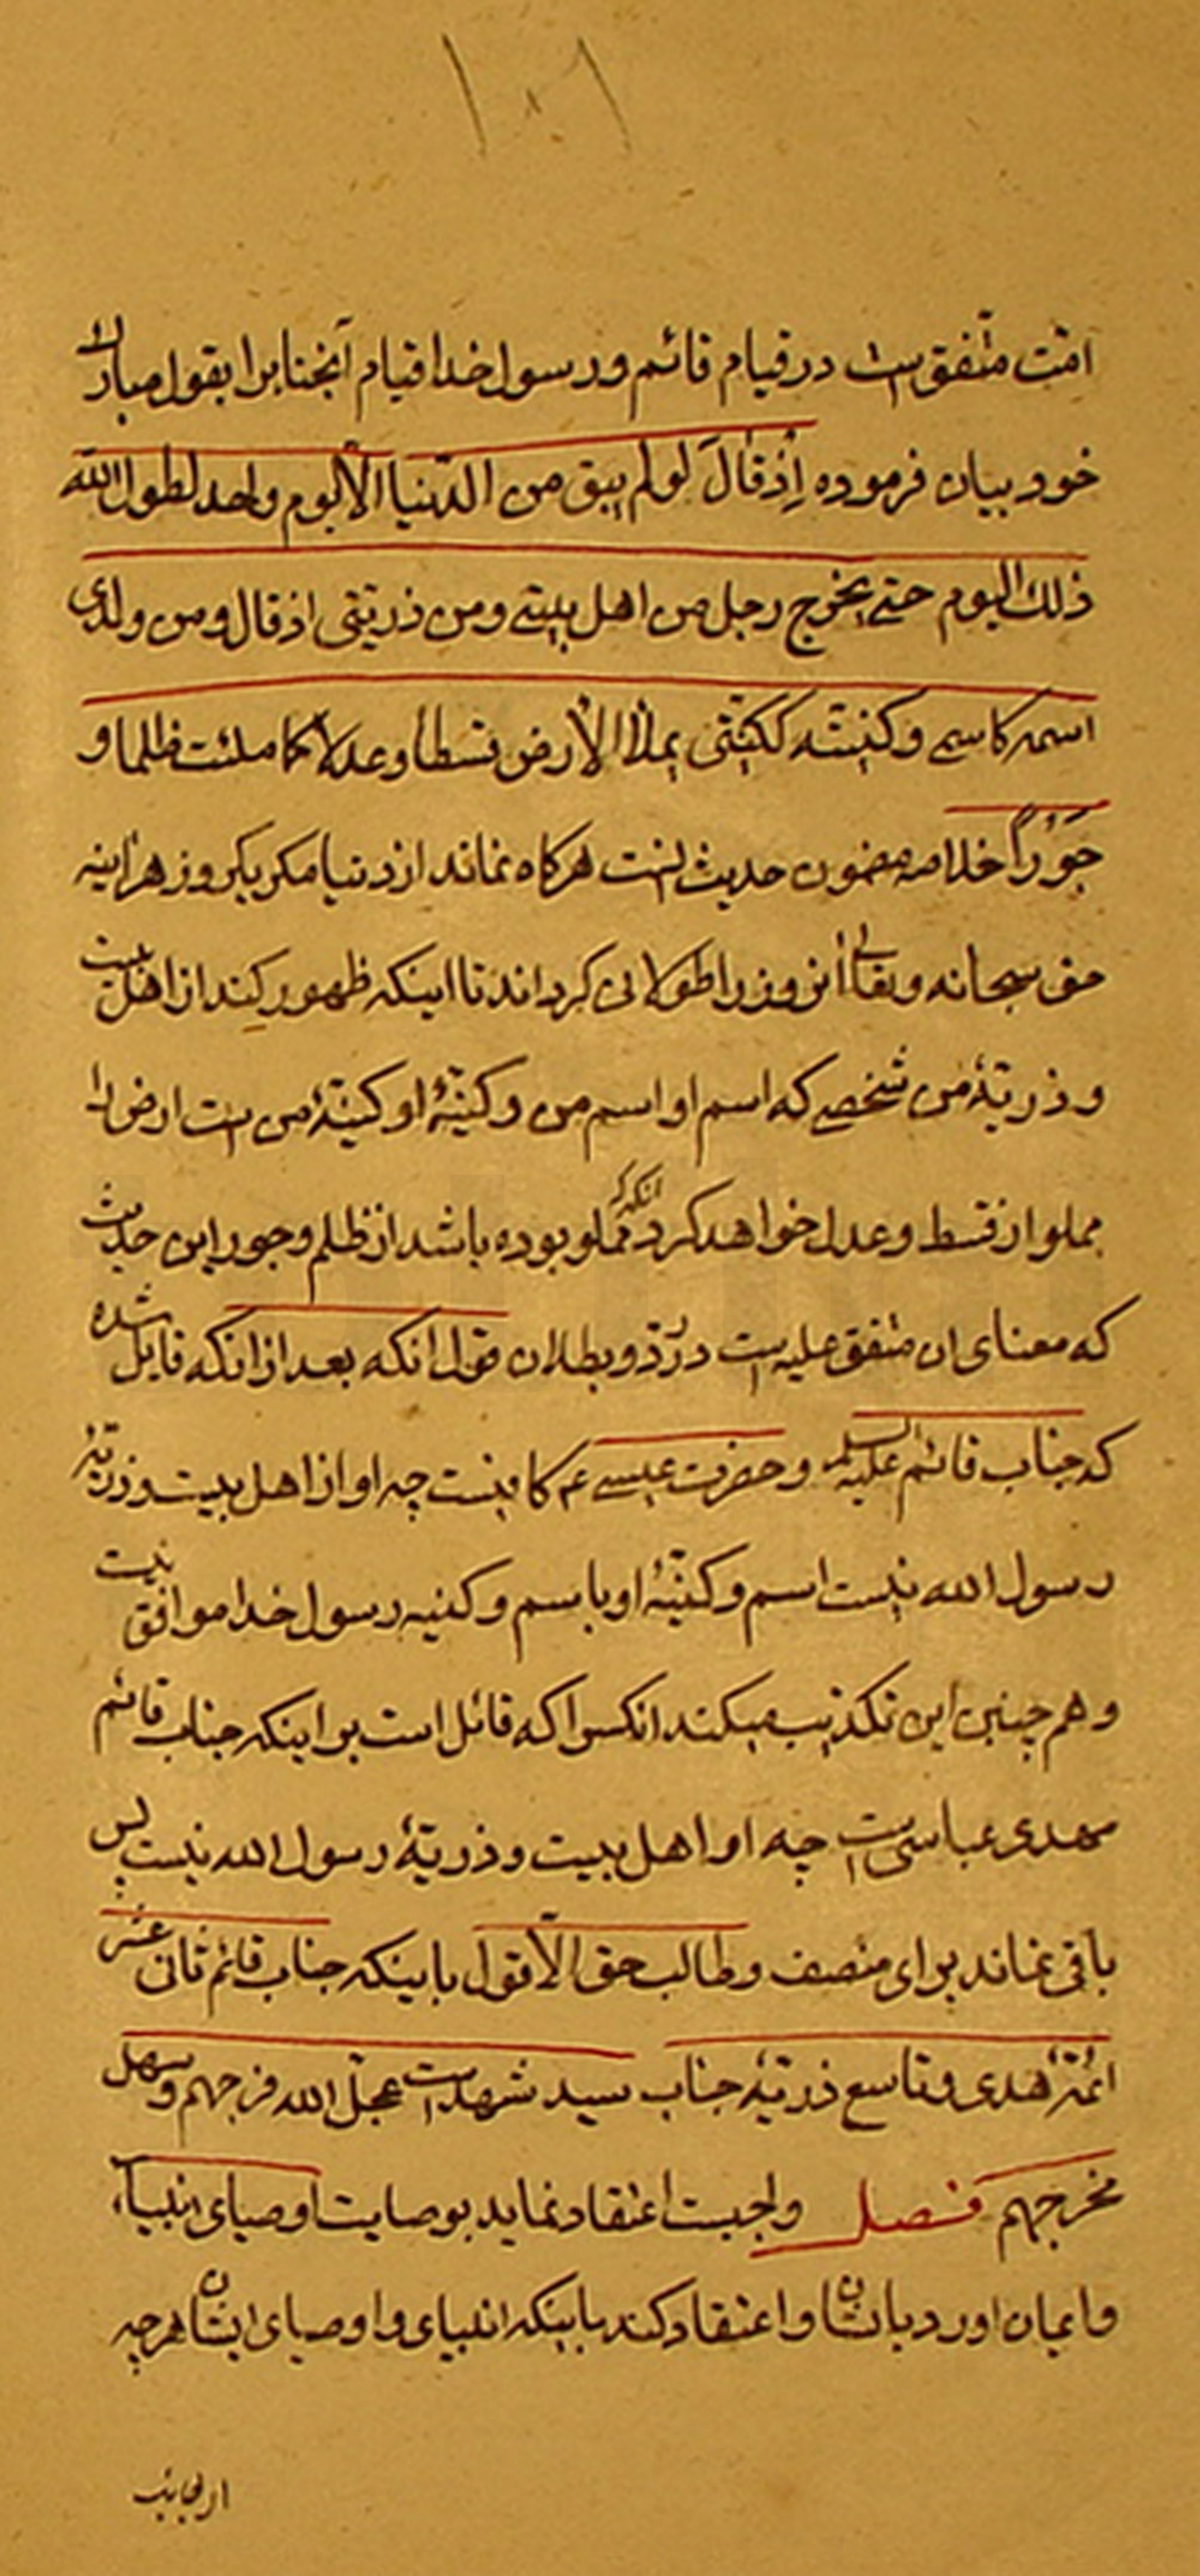 ۱۰۱
امّت متّفق است در قیام قائم و رسول خدا قیام آنجنابرا بقول مبارك
خود بیان فرموده اِذ قالَ لو لم یبق من الدّنیا الّا یوم واحد لطول الله
ذلك الیوم حتے یخرج رجل من اهل بیتے و من ذریّتی اذ قال و من ولدی
اسمه کاسمے و کنیته ککنیّتی یملأ الارض قسطا و عدلا کما ملئت ظلما و
جَوْراً خلاصه مضمون حدیث انست هرکاه نماند از دنیا مکر یکروز هراینه
حق سبحانه و تعالی انروز را طولانی کرداند تا اینکه ظهور کند از اهل بیت
و ذریّهٔ من شخصے که اسم او اسم من و کنیهٔ او کنیهٔ من است ارض را
مملو از قسط و عدل خواهد کرد انکه مملو بوده باشد از ظلم و جور این حدیث
که معنای ان متفق علیه است در ردّ و بطلان قول انکه بعد از انکه قایل شده
که جناب قائم علیه السلم و حضرت عیسے عم کافیست چه او از اهل بیت و ذریّه
رسول الله نیست اسم و کنیهٔ او با اسم و کنیه رسول خدا موافق نیست
و هم چنین این تکذیب میکند انکسرا که قائل است بر اینکه جناب قائم
مهدی عباسی است چه او اهل بیت و ذریهٔ رسول الله نیست پس
باقی نماند برای منصف و طالب حق الّا قول باینکه جناب قائم ثانی عشر
ائمّهٔ هدی و تاسع ذریّهٔ جناب سید شهداست عجل الله فرجهم و سهل
مخرجهم فصل واجبست اعتقاد نماید بوصایت اوصیای انبیاء
و ایمان اورد بانشان و اعتقاد کند باینکه انبیای و اوصیای ایشان هرچه